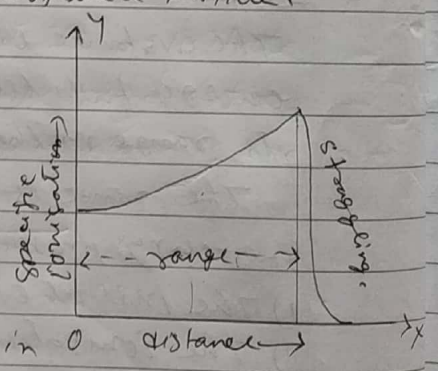 Y
Specific
ionisation
range
straggling.
in
0
distance
X